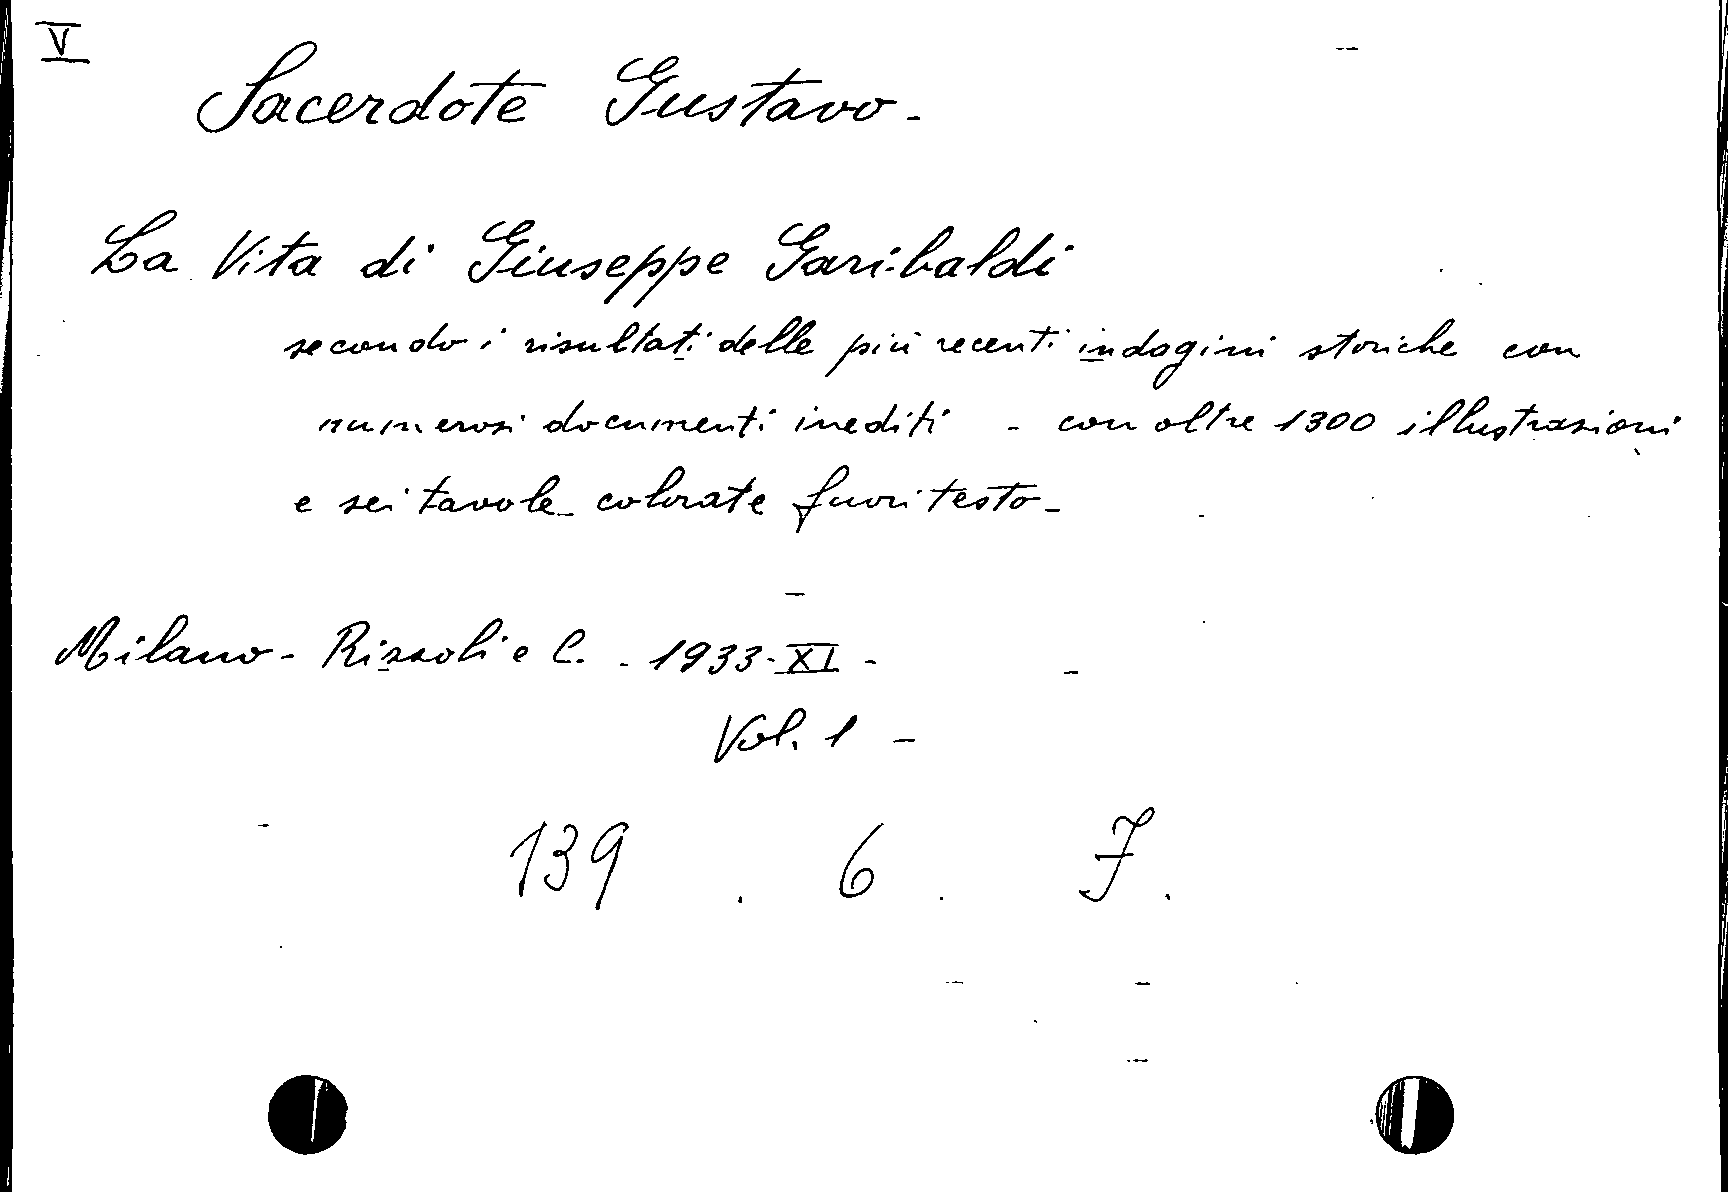 V
Sacerdote Gustavo.
La Vita di Giuseppe Garibaldi
secondo i risultati delle più recenti indagini storiche con
numerosi documenti inediti - con oltre 1300 illustrazioni
e sei tavole colorate fuori testo -
Milano - Rizzoli e C. - 1933 - XI -
Vol. 1 -
139 . 6 . F .